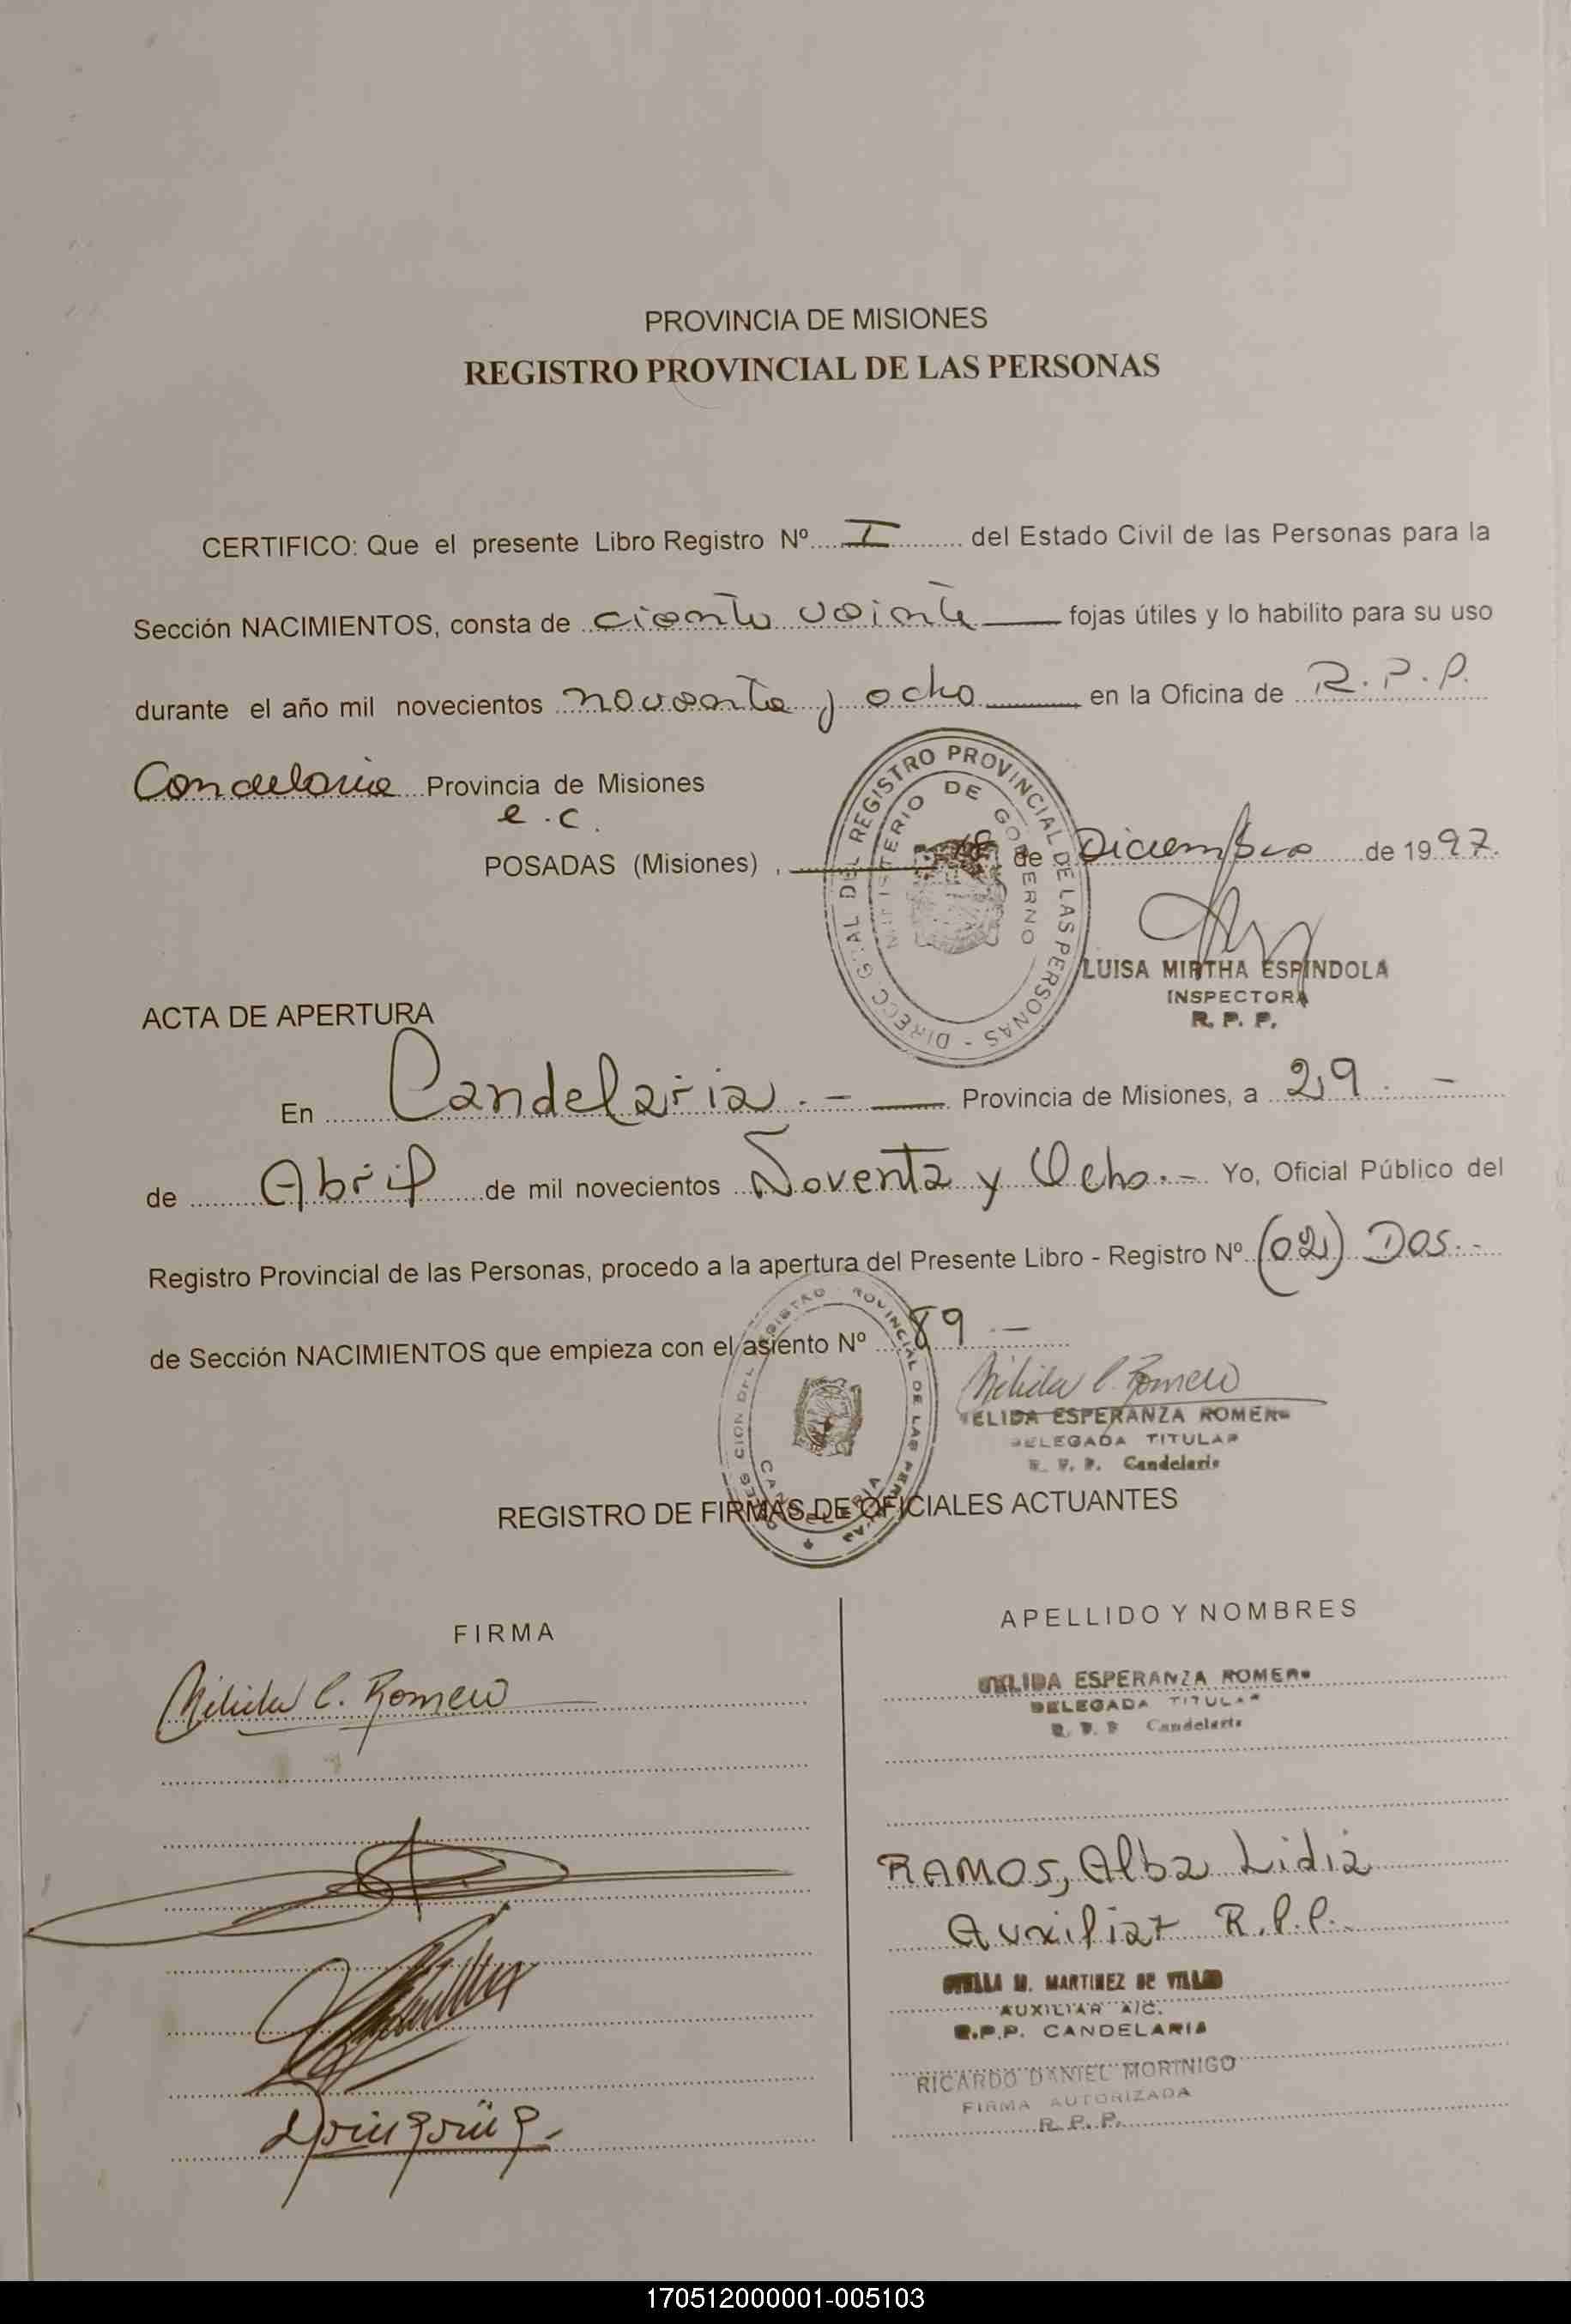 PROVINCIA DE MISIONES
REGISTRO PROVINCIAL DE LAS PERSONAS
CERTIFICO: Que el presente Libro Registro Nº I del Estado Civil de las Personas para la
Sección NACIMIENTOS, consta de ciento veinte fojas útiles y lo habilito para su uso
durante el año mil novecientos noventa y ocho en la Oficina de R.P.P.
Candelaria Provincia de Misiones
e.c.
POSADAS (Misiones), 18 de Diciembre de 1997.
DIRECC. GRAL DEL REGISTRO PROVINCIAL DE LAS PERSONAS -
MINISTERIO DE GOBIERNO
LUISA MIRTHA ESPINDOLA
INSPECTORA
R. P. P.
ACTA DE APERTURA
En Candelaria.- Provincia de Misiones, a 29.-
de Abril de mil novecientos Noventa y Ocho.- Yo, Oficial Público del
Registro Provincial de las Personas, procedo a la apertura del Presente Libro - Registro Nº (02) Dos.-
de Sección NACIMIENTOS que empieza con el asiento Nº 89.-
REGISTRO PROVINCIAL DE LAS PERSONAS
CANDELARIA
Nélida E. Romero
NELIDA ESPERANZA ROMERO
DELEGADA TITULAR
R. P. P. Candelaria
REGISTRO DE FIRMAS DE OFICIALES ACTUANTES
FIRMA APELLIDO Y NOMBRES
Nélida E. Romero NELIDA ESPERANZA ROMERO
DELEGADA TITULAR
R. P. P. Candelaria
RAMOS, Alba Lidia
Auxiliar R.P.P.
M. MARTINEZ DE
AUXILIAR A/C.
R.P.P. CANDELARIA
RICARDO DANIEL MORINIGO
FIRMA AUTORIZADA
R. P. P.
170512000001-005103